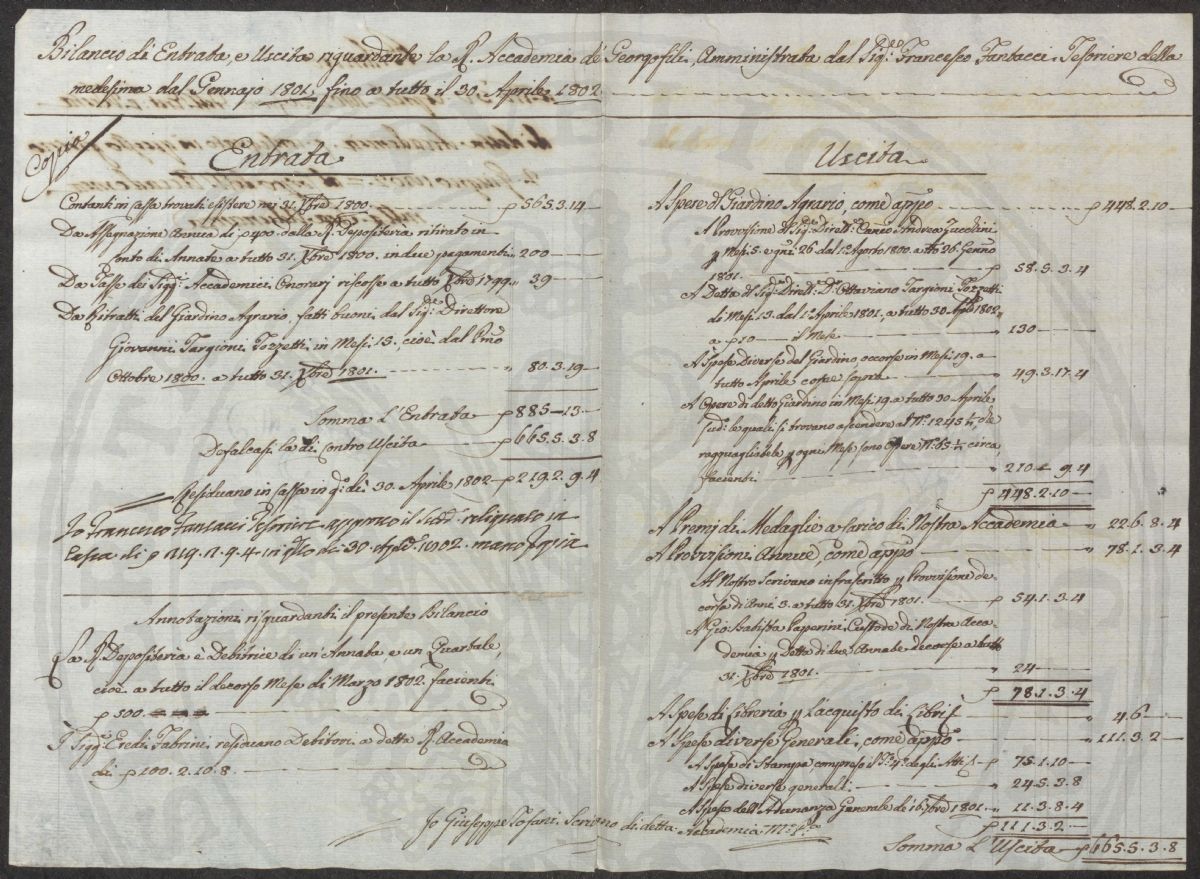 Bilancio di Entrata, e Uscita riguardante la R. Accademia de Georgofili, Amministrata dal Sig.re Francesco Fantacci Tesoriere della
medesima dal Gennajo 1801, fino a tutto il 30 Aprile 1802
Copia
Entrata
Contanti in cassa trovati esistere ne 31. Xbre 1800. p 565.3.14
Da Assegnazione Annua di p 400. dalla R. Depositeria ritirato in
conto di Annate a tutto 31. Xbre 1800. in due pagamenti „ 200
Da Tasse dei Sigg.ri Accademici Onorari riscosse a tutto Xbre 1799 „ 39
Da Ritratti del Giardino Agrario fatti buoni dal Sig.re Direttore
Giovanni Targioni Tozzetti in Mesi 15, cioè dal Pmo
Ottobre 1800. a tutto 31. Xbre 1801. „ 80.3.19
Somma L'Entrata p 885-13
Defalcasi la di contro Uscita p 665.5.3.8
Residuano in Cassa in q.o dì 30. Aprile 1802 p 219.2.9.4
Io Francesco Fantacci Tesoriere approvo il sudd.o reliquato in
Cassa di p 219.2.9.4 in q.to dì 30 Aple 1802. mano ppria
Annotazioni risguardanti il presente Bilancio
La R. Depositeria è Debitrice di un'Annata e un Quartale,
cioè a tutto il decorso Mese di Marzo 1802. facienti
p 500.
I Sigg.ri Eredi Fabrini restano Debitori a detta R. Accademia
di p 100.2.10.8
Uscita
A Spese d'l Giardino Agrario, come app.o p 448.2.10
A Provvisione d'l Sig.re Dirett.e Andrea Zucchini
p Mesi 5. e gni 26 dal 1.o Agosto 1800. a tto 26. Genn.o
1801. p 58.5.3.4
A Detta d'l Sig.re Dirett.e D.re Ottaviano Targioni Tozzetti
di Mesi 13. dal 1.o Aprile 1801, a tutto 30 Aple 1802
a p 10 il Mese „ 130
A Spese Diverse del Giardino occorse in Mesi 19. a
tutto Aprile come sopra „ 49.3.17.4
A Opere di detto Giardino in Mesi 19 a tutto 30 Aprile
sud.o le quali si trovano ascendere al N.o 1245 ½, che
ragguagliabile p ogni Mese sono Opere N.o 65 ½ circa,
facienti „ 210. 9.4
p 448.2.10
A Premj di Medaglie a carico di Nostra Accademia „ 22.6.8.4
A Provvisioni Annue, come app.o „ 78.1.3.4
Al Nostro Scrivano infrascritto p Provvisione de-
corsa di Anni 3. a tutto 31. Xbre 1801. p 54.1.3.4
A Gio. Batista Paperini Custode di Nostra Acca-
demia p Detta di due Annate decorse a tutto
31. Xbre 1801. „ 24
p 78.1.3.4
A Spese di Libreria p L'acquisto di Libri „ 4.6
A Spese diverse Generali, come app.o „ 111.3.2
A Spese di Stampa, compreso il T.o 4.o degli Atti p 75.1.10
A Spese diverse generali „ 24.5.3.8
A Spese dell'Adunanza Generale de 16. Xbre 1801. „ 11.3.8.4
p 111.3.2
Somma L'Uscita p 665.5.3.8
Io Giuseppe Tofani Scrivano di detta Accademia M.o P.a